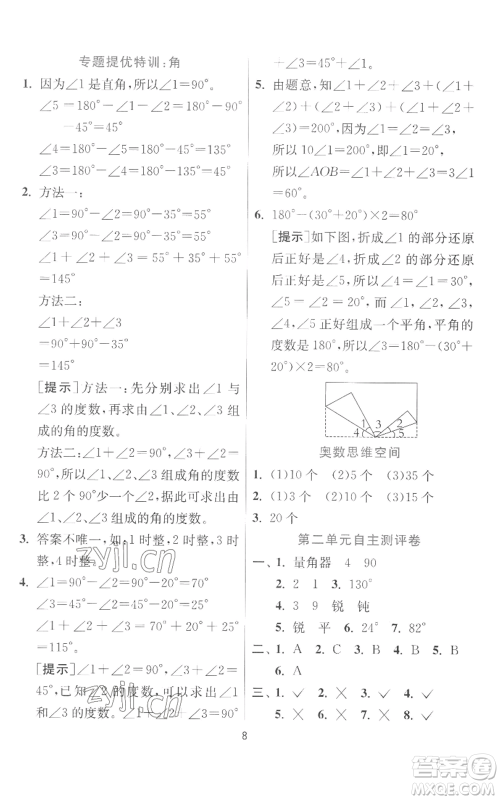 专题提优特训:角
1. 因为∠1是直角,所以∠1=90°。
∠5=180°-∠1-∠2=180°-90°
-45°=45°
∠4=180°-∠5=180°-45°=135°
∠3=180°-∠4=180°-135°=45°
2. 方法一:
∠1=90°-∠2=90°-35°=55°
∠3=90°-∠2=90°-35°=55°
∠1+∠2+∠3=55°+35°+55°
=145°
方法二:
∠1+∠2+∠3
=90°+90°-35°
=145°
[提示]方法一:先分别求出∠1与∠3
的度数,再求由∠1、∠2、∠3组
成的角的度数。
方法二:因为∠1、∠2、∠3组成角的度数
比2个90°少一个∠2,据此可以求出由
∠1、∠2、∠3组成的角的度数。
3. 答案不唯一,1时整,2时整,3时
整,4时整。
4. ∠1=90°-∠2=90°-60°=30°
∠3=45°-∠1=45°-30°=15°
∠1+∠2+∠3=30°+60°+25°
=115°。
[提示]∠1+∠2=90°,∠1+∠3=
45°,已知∠2的度数,可以求出∠1
的度数,也可以求出∠3的度数。
∠1+∠2+∠3=90°+∠3。
5. 由题意,知∠1+(∠1+∠2)+
(∠1+∠2+∠3)+∠2+(∠2+
∠3)+∠3=200°,
因为∠1=∠2=∠3,
所以10∠1=200°,则∠1=20°。
所以∠AOB=∠1+∠2+∠3
=60°。
6. 180°-(30°+20°)×2=80°
[提示]如下图,折成∠1的部分还原
后正好与∠4重合,折成∠2的部分还原
后正好与∠5重合,∠1、∠2、∠3、∠4、
∠5正好组成一个平角,平角的
度数是180°,所以∠3=180°-(30°
+20°)×2=80°。
1 3 2
4 5
奥数思维空间
1. (1)10个 (2)5个 (3)35个
2. (1)3个 (2)10个 (3)15个
3. 20个
第二单元自主测评卷
一、1. 量角器 4 90
2. 2 1 3. 130°
4. 3 9 锐 钝
5. 锐 平 6. 2 7. 82°
二、1. A 2. C 3. B 4. B 5. A
6. A
三、1. ✓ 2. × 3. × 4. ✓
5. × 6. × 7. × 8. ✓
8
zyjl.cn
zyjl.cn
答案圈
MXQE.COM